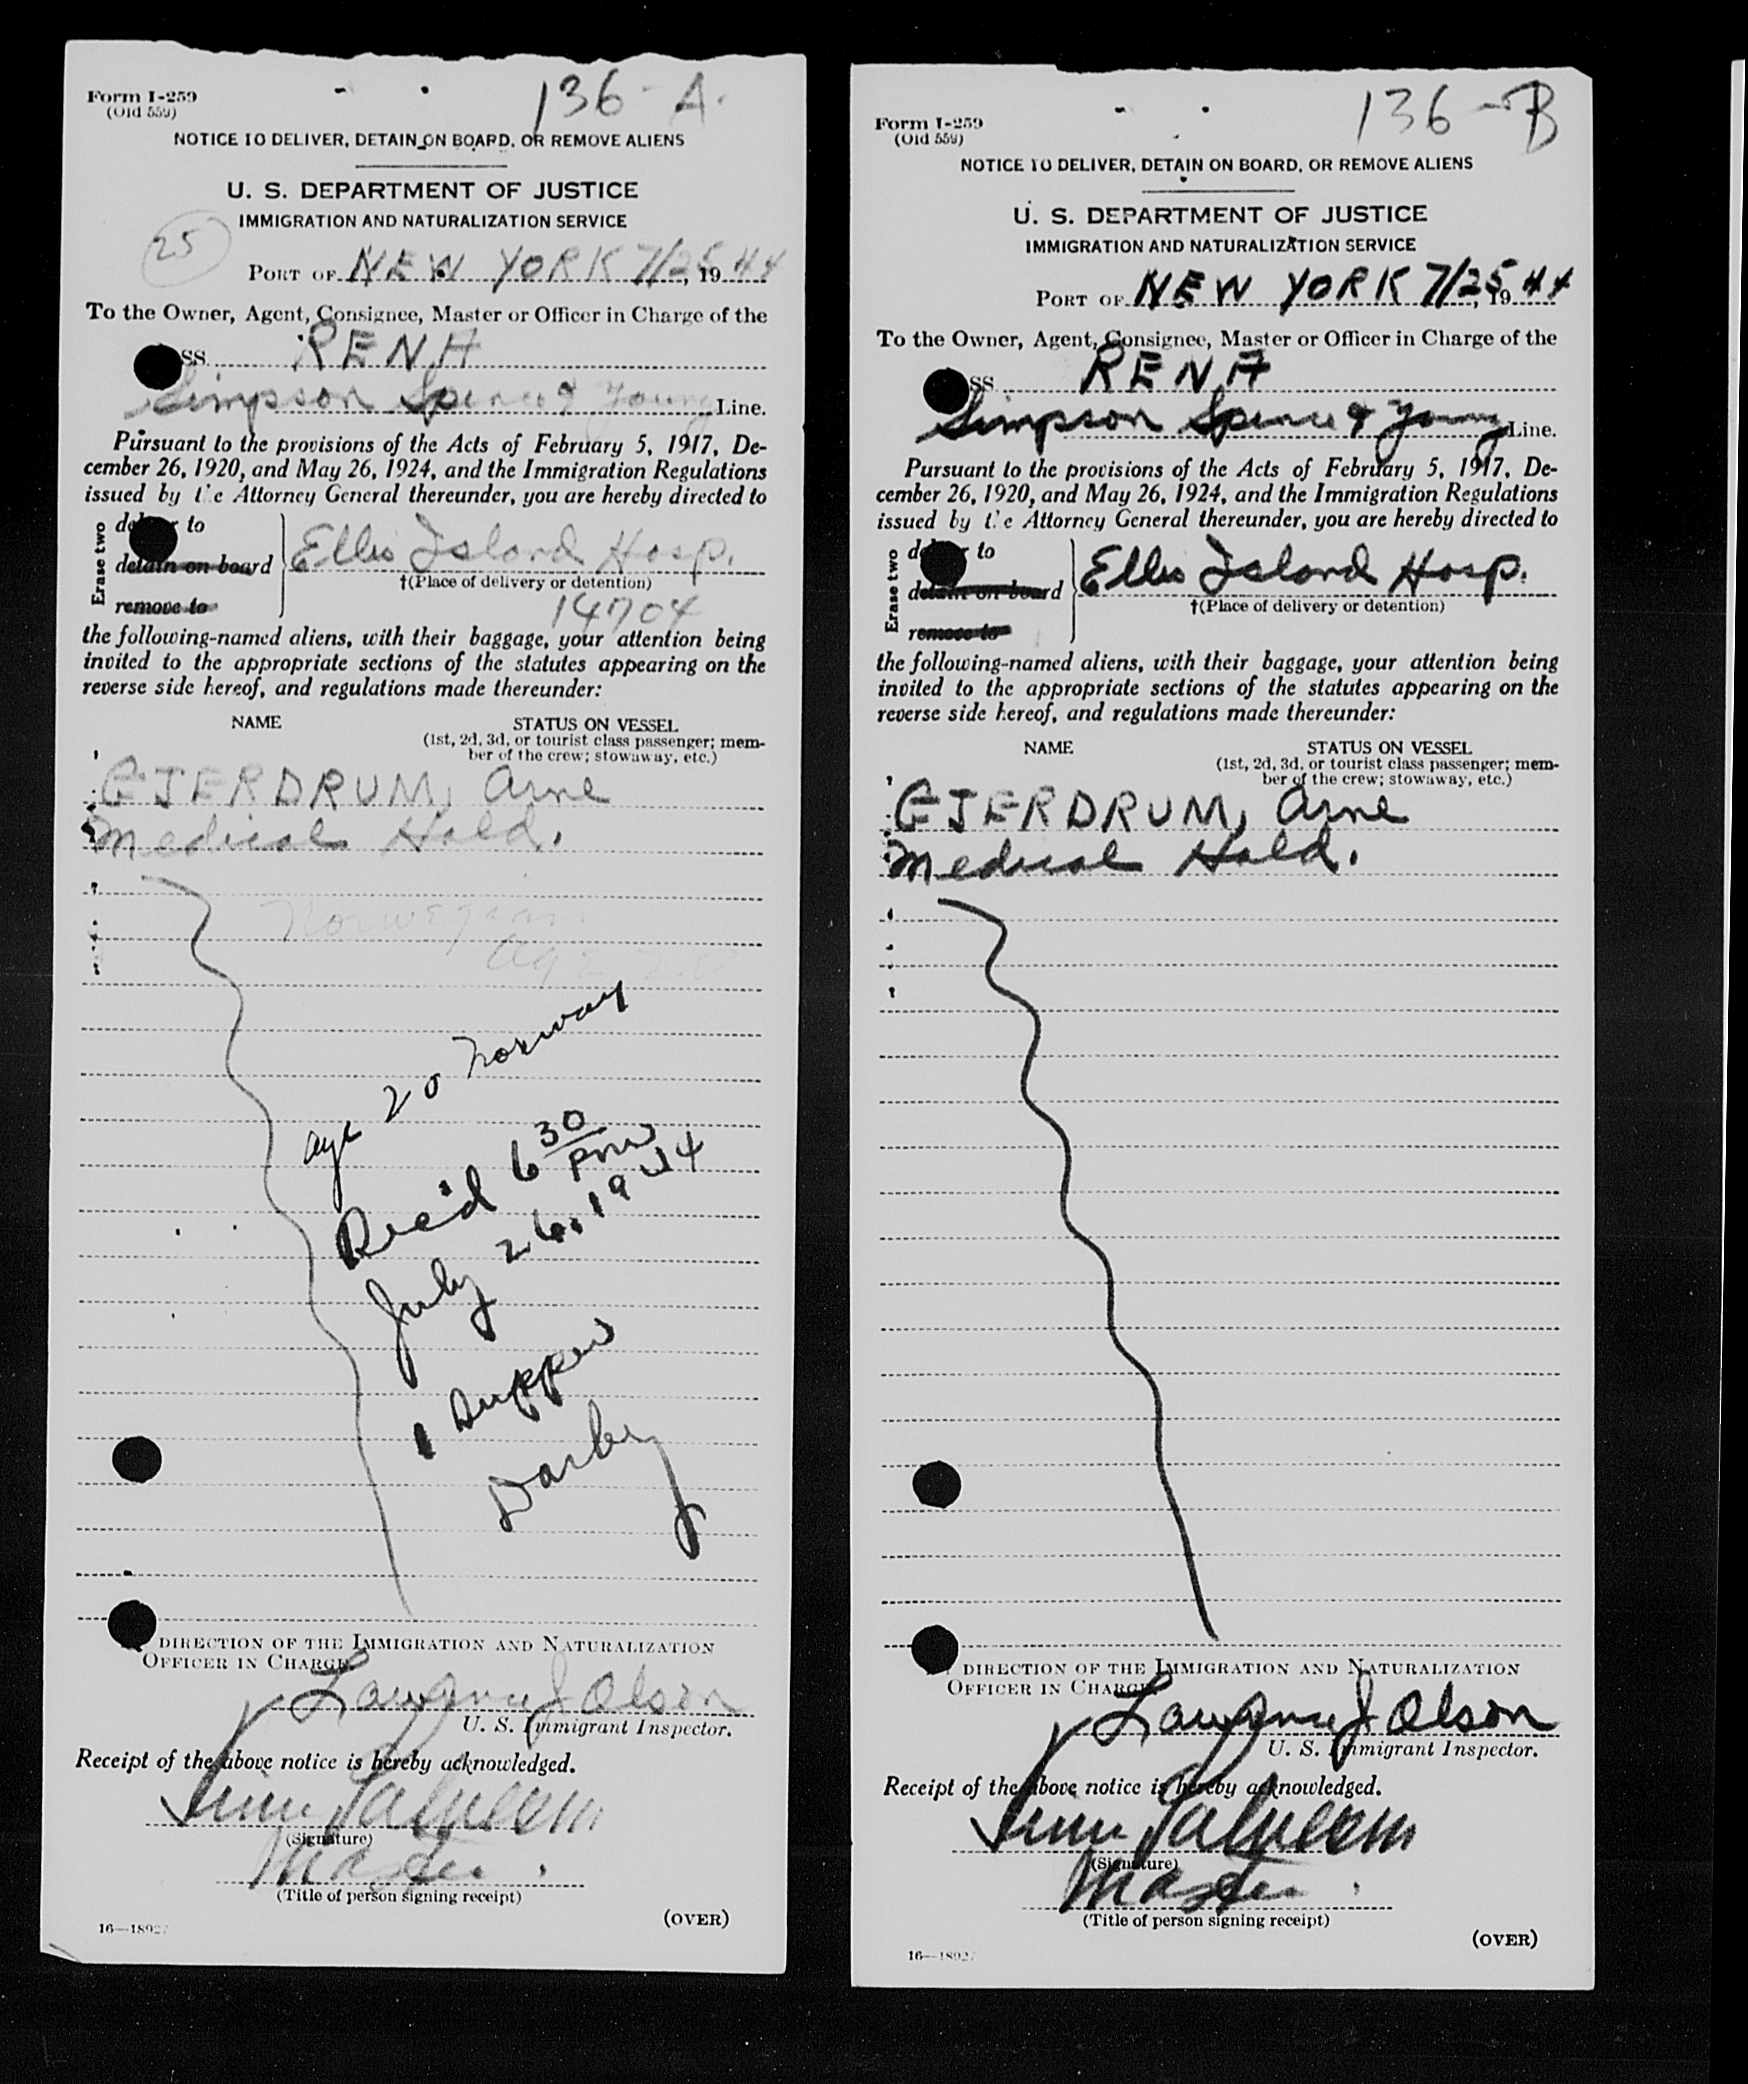 136-A.
Form I-259
(Old 559)
NOTICE TO DELIVER, DETAIN ON BOARD, OR REMOVE ALIENS
U. S. DEPARTMENT OF JUSTICE
IMMIGRATION AND NATURALIZATION SERVICE
25
PORT OF NEW YORK 7/25, 1944
To the Owner, Agent, Consignee, Master or Officer in Charge of the
SS. RENA
Simpson Spence & Young Line.
Pursuant to the provisions of the Acts of February 5, 1917, De-
cember 26, 1920, and May 26, 1924, and the Immigration Regulations
issued by the Attorney General thereunder, you are hereby directed to
Erase two
to
detain on board
remove to
Ellis Island Hosp.
†(Place of delivery or detention)
14704
the following-named aliens, with their baggage, your attention being
invited to the appropriate sections of the statutes appearing on the
reverse side hereof, and regulations made thereunder:
NAME STATUS ON VESSEL
(1st, 2d, 3d, or tourist class passenger; mem-
ber of the crew; stowaway, etc.)
GJERDRUM, Arne
Medical Hold.
Norwegian
age 20
age 20 Norway
Rec'd 6 30 PM
July 26, 1944
1 Supper
Darby
DIRECTION OF THE IMMIGRATION AND NATURALIZATION
OFFICER IN CHARGE
Lawrence J Olson
U. S. Immigrant Inspector.
Receipt of the above notice is hereby acknowledged.
(Signature)
Master
(Title of person signing receipt)
16—18927
(OVER)
136-B
Form I-259
(Old 559)
NOTICE TO DELIVER, DETAIN ON BOARD, OR REMOVE ALIENS
U. S. DEPARTMENT OF JUSTICE
IMMIGRATION AND NATURALIZATION SERVICE
PORT OF NEW YORK 7/25, 1944
To the Owner, Agent, Consignee, Master or Officer in Charge of the
SS RENA
Simpson Spence & Young Line.
Pursuant to the provisions of the Acts of February 5, 1917, De-
cember 26, 1920, and May 26, 1924, and the Immigration Regulations
issued by the Attorney General thereunder, you are hereby directed to
Erase two
to
detain on board
remove to
Ellis Island Hosp.
†(Place of delivery or detention)
the following-named aliens, with their baggage, your attention being
invited to the appropriate sections of the statutes appearing on the
reverse side hereof, and regulations made thereunder:
NAME STATUS ON VESSEL
(1st, 2d, 3d, or tourist class passenger; mem-
ber of the crew; stowaway, etc.)
GJERDRUM, Arne
Medical Hold.
DIRECTION OF THE IMMIGRATION AND NATURALIZATION
OFFICER IN CHARGE
Lawrence J Olson
U. S. Immigrant Inspector.
Receipt of the above notice is hereby acknowledged.
(Signature)
Master
(Title of person signing receipt)
16—18927
(OVER)